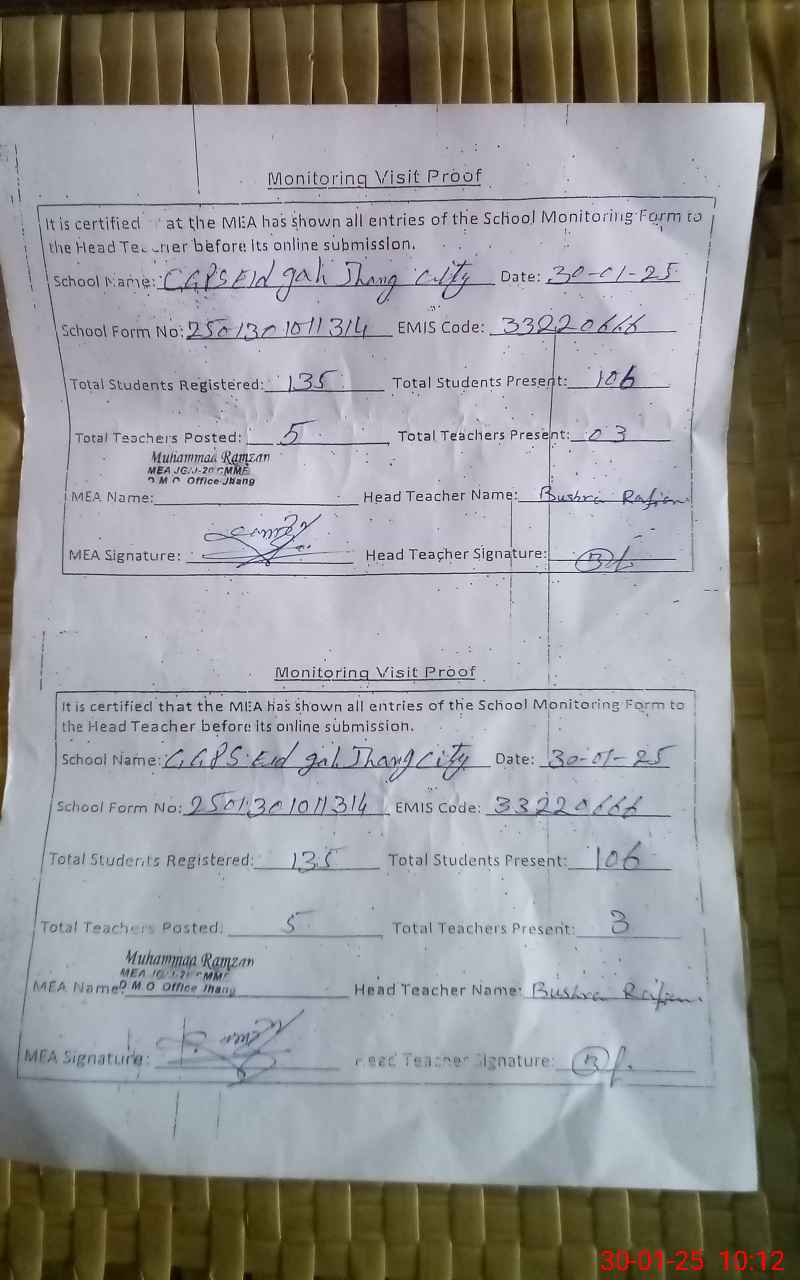 Monitoring Visit Proof
It is certified at the MEA has shown all entries of the School Monitoring Form to
the Head Teacher before its online submission.
School Name: GGPS Eid gah Jhang City Date: 30-01-25
School Form No: 2501301011314 EMIS Code: 33220666
Total Students Registered: 135 Total Students Present: 106
Total Teachers Posted: 5 Total Teachers Present: 03
Muhammad Ramzan
MEA JG/J-20 CMMF
D M O Office Jhang
MEA Name: Head Teacher Name: Bushra
MEA Signature: Head Teacher Signature:
Monitoring Visit Proof
It is certified that the MEA has shown all entries of the School Monitoring Form to
the Head Teacher before its online submission.
School Name: GGPS Eid gah Jhang City Date: 30-01-25
School Form No: 2501301011314 EMIS Code: 33220666
Total Students Registered: 135 Total Students Present: 106
Total Teachers Posted: 5 Total Teachers Present: 3
Muhammad Ramzan
MEA CMMF
D M O Office Jhang
MEA Name: Head Teacher Name: Bushra
MEA Signature: Head Teacher Signature:
30-01-25 10:12